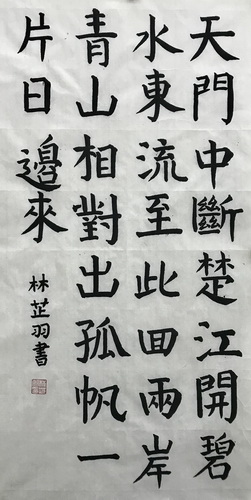 天門中斷楚江開碧
水東流至此回兩岸
青山相對出孤帆一
片日邊來
林芷羽書